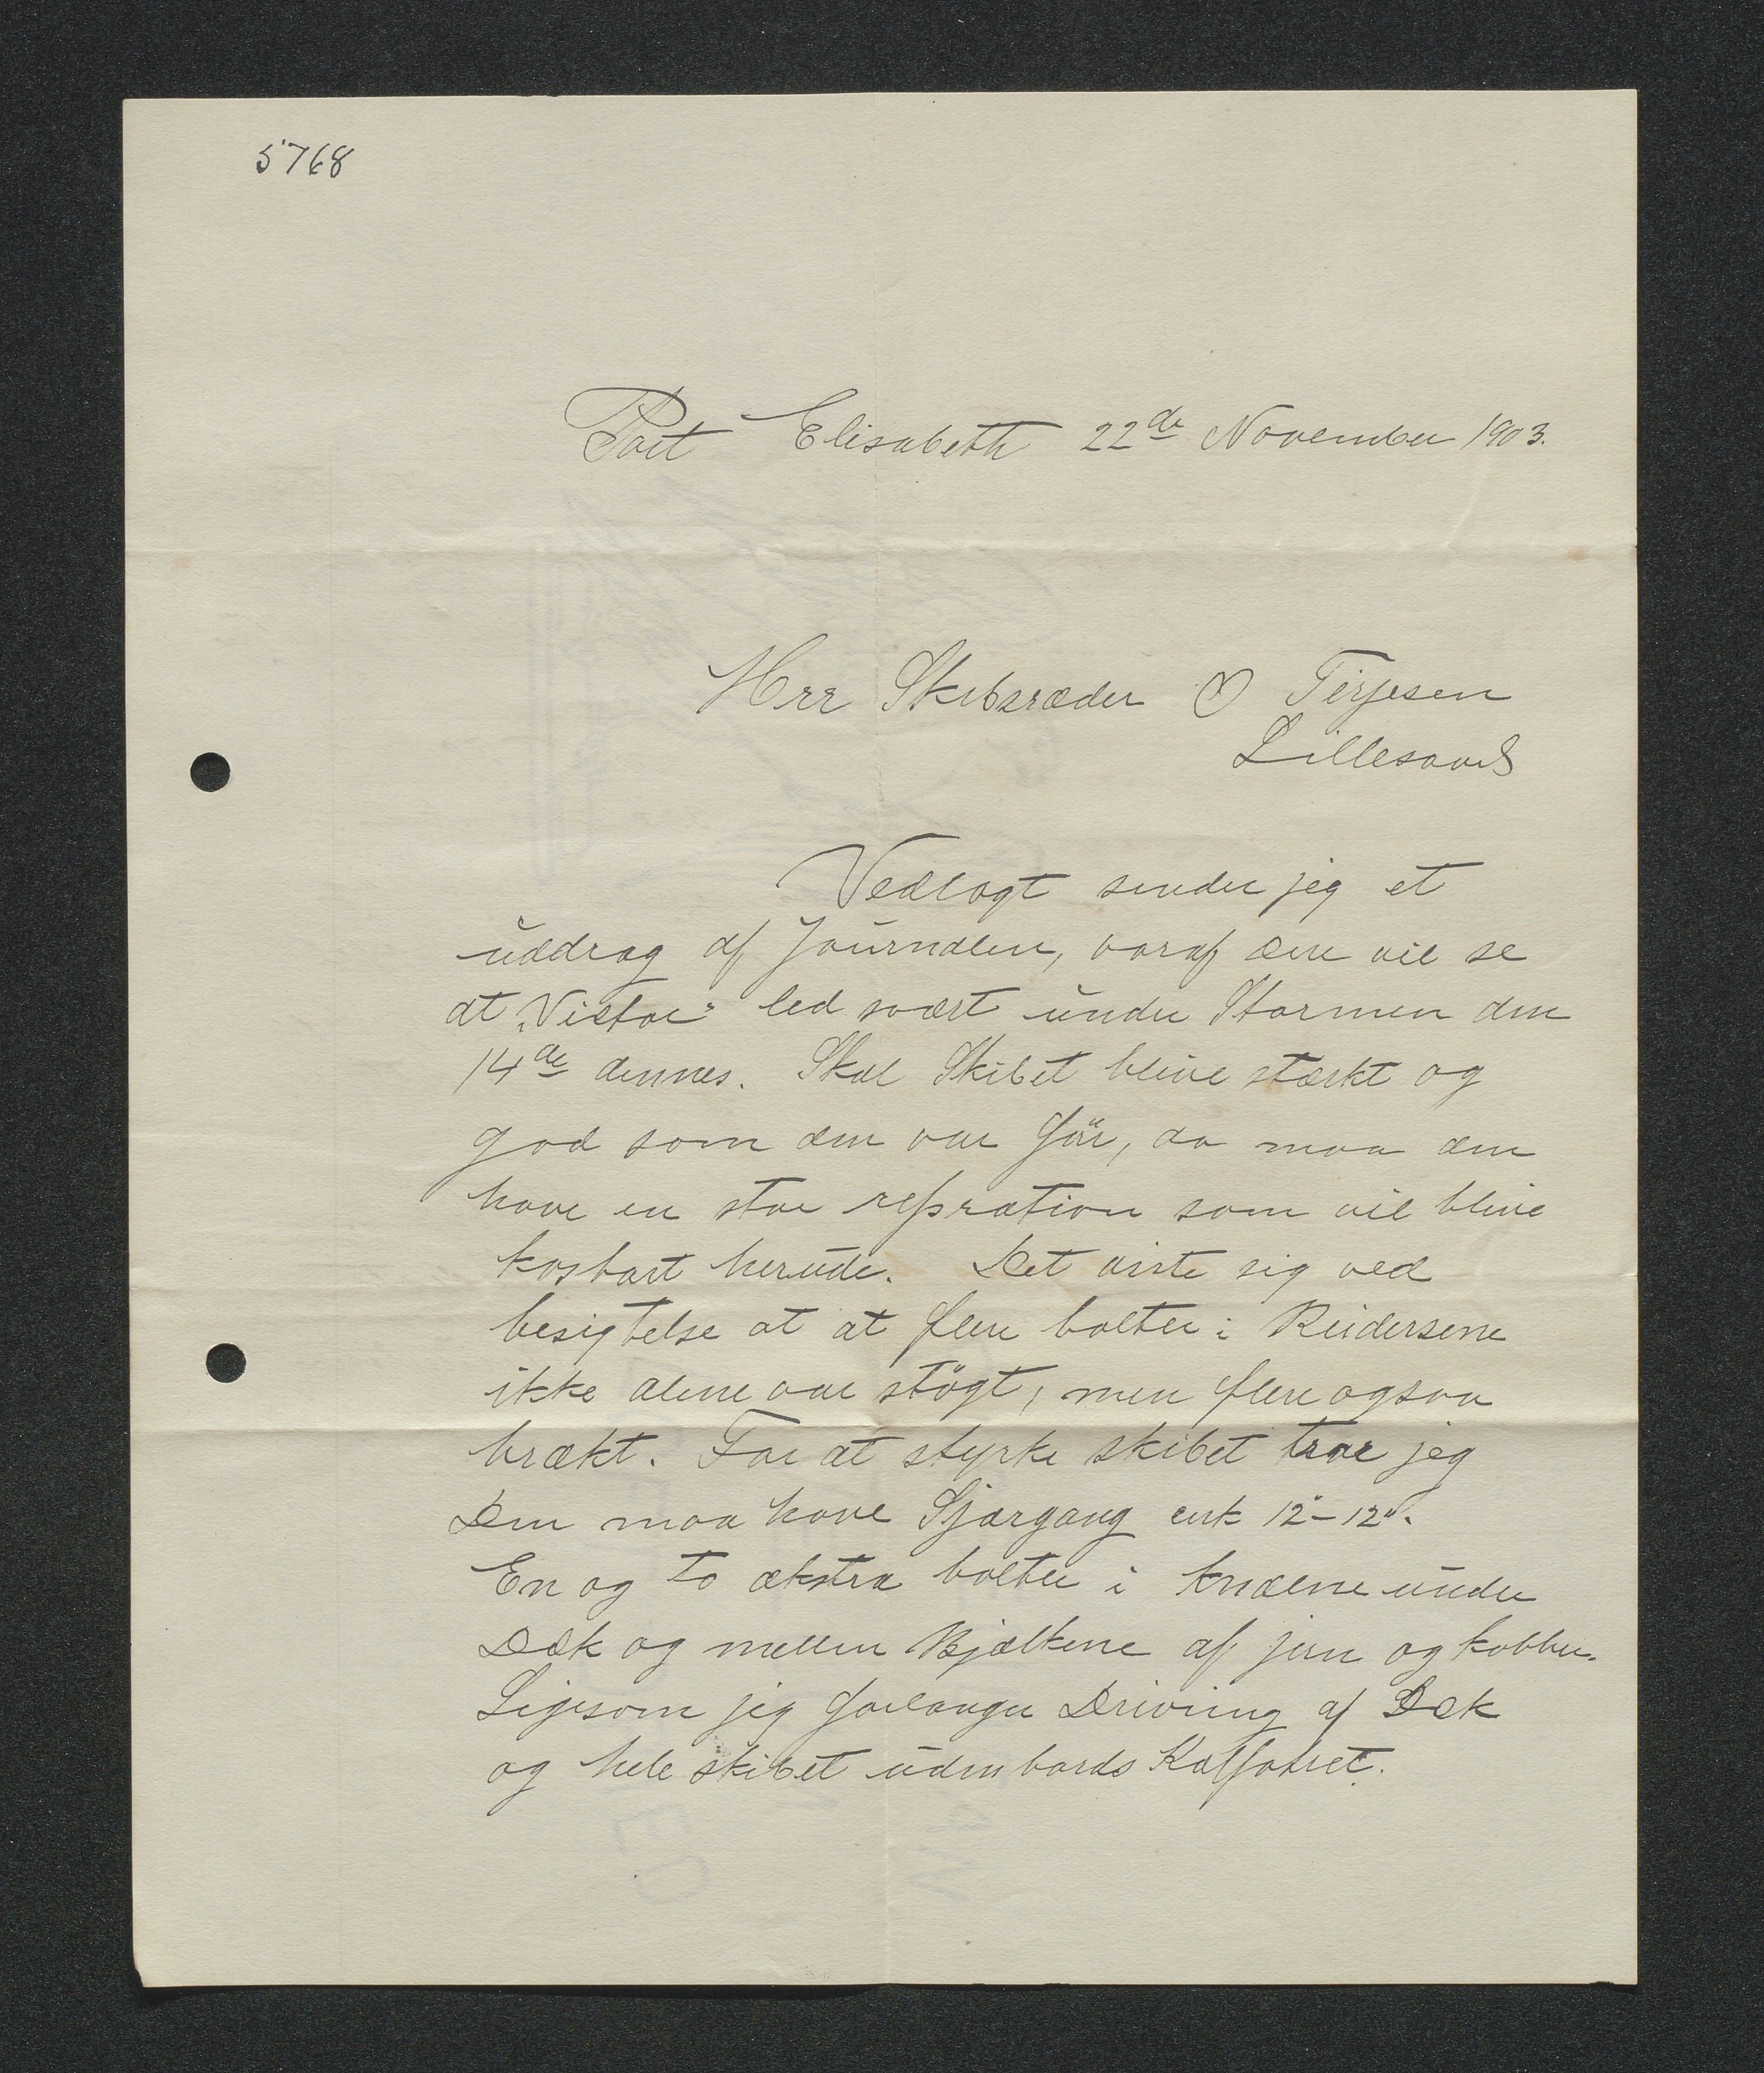 5768
Port Elisabeth 22de November 1903.
Herr Skibsræder O Terjesen
Lillesand
Vedlagt sender jeg et
uddrag af Journalen, voraf dere vil se
at „Victor" led svært under Stormen den
14de dennes. Skal Skibet blive stærkt og
god som den var för, da maa den
have en stor repration som vil blive
kosbart herude. Det viste sig ved
besigtelse at at flere bolter i Ridersene
ikke alene var stögt, men flere ogsaa
brækt. For at styrke skibet tror jeg
Den maa have Sjærgang cirk 12"-12".
En og to ækstra bolter i knæerne under
Dæk og mellem Bjælkene af jern og kobber.
Ligesom jeg forlanger Drivning af Dæk
og hele skibet udenbords Kalfatret.